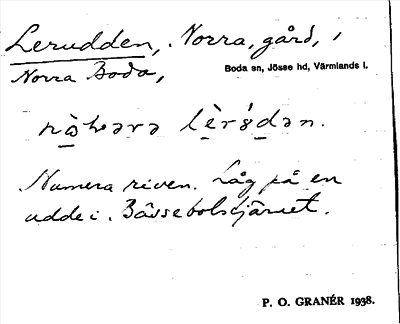 Lerudden, Norra, gård, i
Norra Boda,
Boda sn, Jösse hd, Värmlands l.
Numera riven. Låg på en
udde i Båssebolstjärnet.
P. O. GRANÉR 1938.